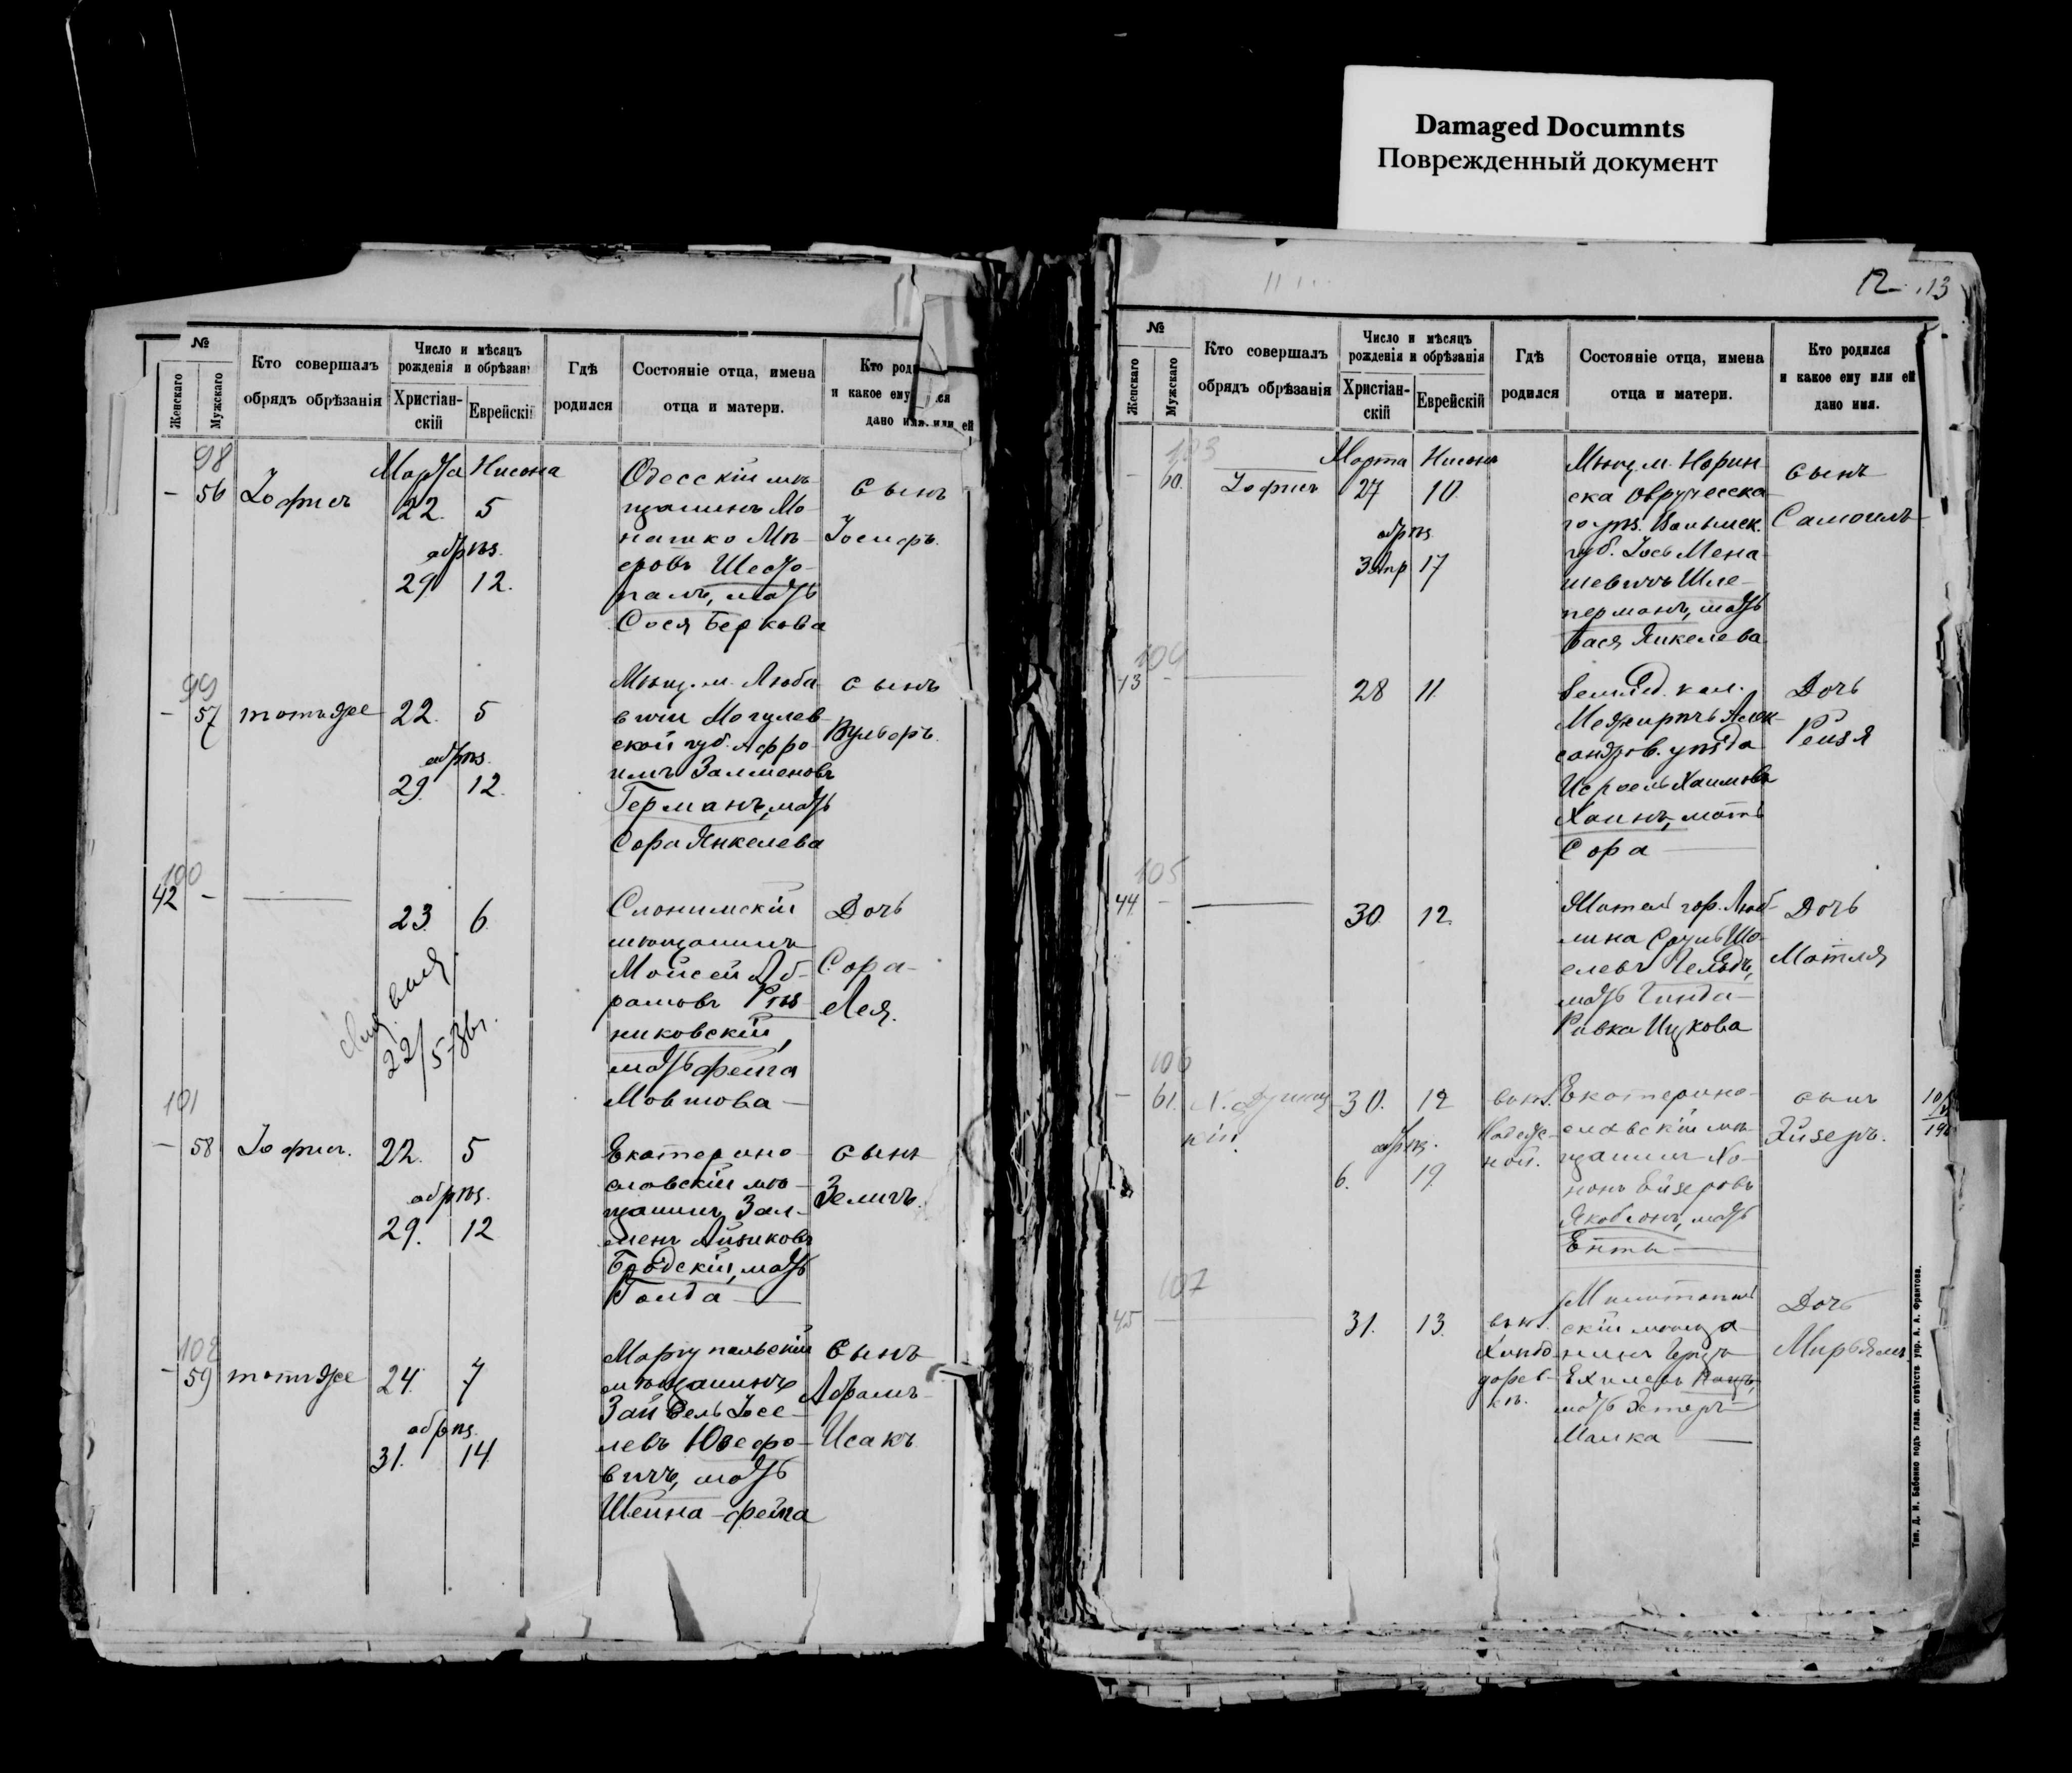 Damaged Documnts
Поврежденный документ
№
Женскаго
Мужскаго
Кто совершалъ
обрядъ обрѣзанія
Число и мѣсяцъ
рожденія и обрѣзані
Христіан-
скій
Еврейскі
Гдѣ
родился
Состояніе отца, имена
отца и матери.
Кто роди
и какое ему
дано имя. или ей
98
Марта Нисона
- 56 Іофисъ 22. 5
обрѣз.
29 12.
Одесскій мѣ-
щанинъ Мо-
нашко Мѣ-
еровъ Шесто-
палъ, мать
Сося Беркова
сынъ
Іосифъ.
99
- 57 тотъ же 22. 5
обрѣз.
29. 12.
Мѣщ. м. Люба-
вичи Могилев-
ской губ. Афро-
имъ Залменовъ
Германъ, мать
Сора Янкелева
сынъ
Вульфъ.
100
42 - 23. 6
22/5
Слонимскій
мѣщанинъ
Мойсей Аб-
рамовъ Рѣз-
никовскій,
мать Фейга
Мовшова
Дочь
Сора-
Лея.
101
- 58 Іофисъ. 22. 5
обрѣз.
29. 12
Екатерино-
славскій мѣ-
щанинъ Зал-
менъ Айзиковъ
Бродскій, мать
Голда
сынъ
Зеликъ.
102
- 59 тотъ же 24. 7
обрѣз.
31. 14
Маріупольскій
мѣщанинъ
Зайвель Іосе-
левъ Юзефо-
вичъ, мать
Шейна-Фейга
сынъ
Абрамъ-
Исакъ
12 13
№
Женскаго
Мужскаго
Кто совершалъ
обрядъ обрѣзанія
Число и мѣсяцъ
рожденія и обрѣзанія
Христіан-
скій
Еврейскій
Гдѣ
родился
Состояніе отца, имена
отца и матери.
Кто родился
и какое ему или ей
дано имя.
103
Марта Нисона
- 60. Іофисъ 27 10.
обрѣз.
3 Апр 17
Мѣщ. м. Норин-
ска Овручска-
го уѣз. Волынск.
губ. Іось Мена-
шевичъ Шле-
перманъ, мать
Бася Янкелева
сынъ
Самоилъ
104
13 - 28 11.
Землед. кол.
Межиричъ Алек-
сандров. уѣзда
Исроель Хаимовъ
Хаинъ, мать
Сора
Дочь
Рейзя
105
44. - 30. 12.
Житель гор. Люб-
лина Сруль Шо-
елевъ
мать Гинда-
Ривка Ицкова
Дочь
Матля
106
- 61. 30. 12
обрѣз.
6. 19.
Екатерино-
славскій мѣ-
щанинъ Хо-
нонъ Ейзеровъ
Якобсонъ, мать
Енты
сынъ
107
45 - 31. 13.
скій мѣща-
нинъ Герцъ
Ехилевъ Кацъ,
мать Эстеръ-
Малка
Дочь
Мирьямъ
Тип. Д. И. Бабенко подъ глав. отвѣтств. упр. А. А. Франтова.